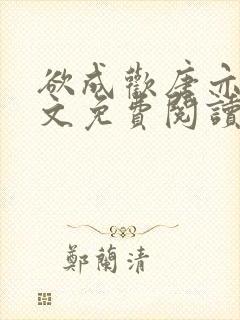 欲成歡唐亦
文免費閱讀
鄭蘭清